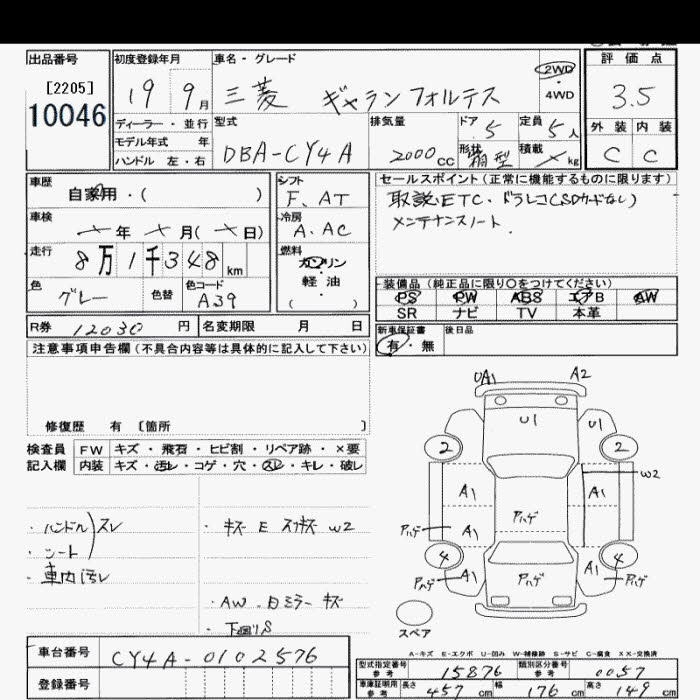 出品番号
[2205]
10046
初度登録年月
19 9月
ディーラー・並行
モデル年式 年
ハンドル 左・右
車名・グレード
三菱 ギャランフォルティス
2WD
・
4WD
型式
DBA-CY4A
排気量
2000cc
ドア
5
定員
5人
形状
箱型
積載
kg
評価点
3.5
外装 内装
C C
車歴
自家用・( )
車検
年 月( 日)
走行
8万1千348km
色
グレー
色替
色コード
A39
シフト
F. AT
冷房
A. AC
燃料
ガソリン
・
軽油
・
( )
セールスポイント(正常に機能するものに限ります)
取説 ETC. ドラレコ(SDカードなし)
メンテナンスノート.
装備品(純正品に限り○をつけてください)
PS PW ABS エアB AW
SR ナビ TV 本革
新車保証書
有・無
後日品
R券 12030円
名変期限 月 日
注意事項申告欄(不具合内容等は具体的に記入して下さい)
修復歴 有 [箇所 ]
検査員
記入欄
FW キズ・飛石・ヒビ割・リペア跡・×要
内装 キズ・汚レ・コゲ・穴・スレ・キレ・破レ
・ハンドル)スレ
・シート
・車内汚レ
・キズ E スリキズ W2
・AW. ミラー キズ
・下回りS
UA1 A2
U1 U1
2 2
W2
A1 A1
アハゲ アハゲ
A1 A1
4 4
アハゲ A1 アハゲ A1 アハゲ
スペア
A-キズ E-エクボ U-凹み W-補修跡 S-サビ C-腐食 XX-交換済
車台番号
CY4A-0102576
登録番号
型式指定番号
参考
15876
類別区分番号
参考
0057
車庫証明用
参考
長さ 457cm 幅 176cm 高さ 149cm